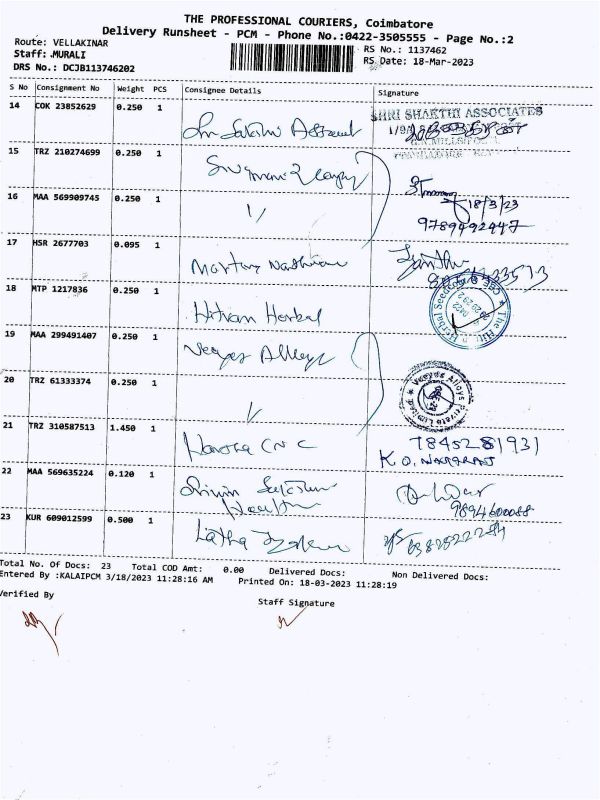 THE PROFESSIONAL COURIERS, Coimbatore
Delivery Runsheet - PCM - Phone No.:0422-3505555 - Page No.:2
Route: VELLAKINAR
RS No.: 1137462
Staff: .MURALI
RS Date: 18-Mar-2023
DRS No.: DCJB113746202
S No Consignment No Weight PCS Consignee Details Signature
14 COK 23852629 0.250 1
SHRI SHAKTHI ASSOCIATES
15 TRZ 210274699 0.250 1
16 MAA 569909745 0.250 1
18/3/23
9789492447
17 HSR 2677703 0.095 1
18 MTP 1217836 0.250 1
Hitvan Herbal
19 MAA 299491407 0.250 1
Veeyes Alloys
Veeyes Alloys Private Limited
20 TRZ 61333374 0.250 1
21 TRZ 310587513 1.450 1
CNC
7845281931
K.O. NAGARAJ
22 MAA 569635224 0.120 1
9894600088
23 KUR 609012599 0.500 1
Latha
Total No. Of Docs: 23 Total COD Amt: 0.00 Delivered Docs: Non Delivered Docs:
Entered By :KALAIPCM 3/18/2023 11:28:16 AM Printed On: 18-03-2023 11:28:19
Verified By
Staff Signature